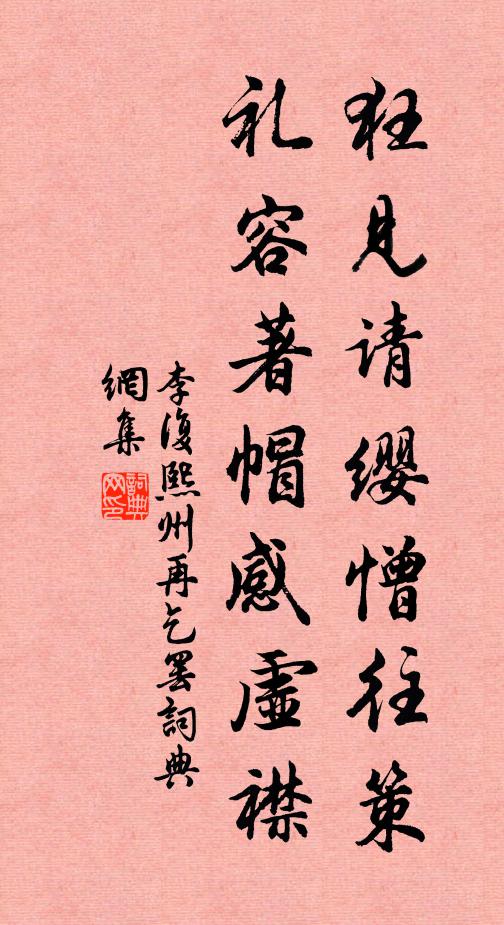 狂见请缨憎往策
礼容著帽感虚襟
李復熙州再乞罢詞典
網集
詞典
网印